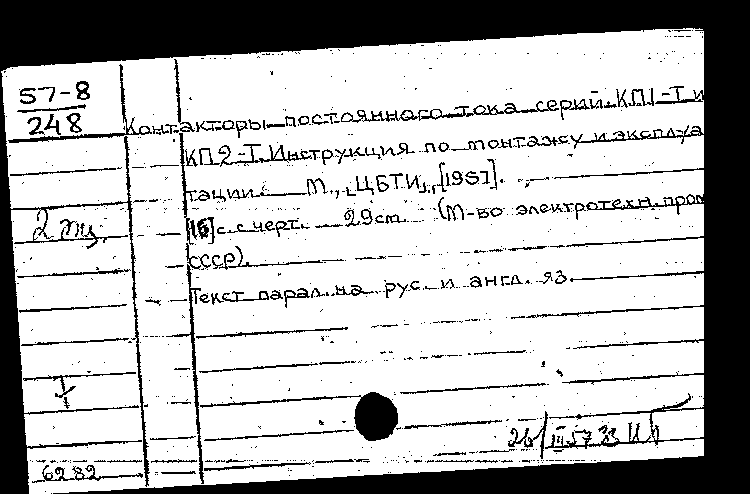 57-8
248
Контакторы постоянного тока серий КП1-Т и
КП2-Т. Инструкция по монтажу и эксплуа
тации. М., ЦБТИ, [1957].
2 экз.
[16]с. с черт. 29см. (М-во электротехн. пром
СССР).
Текст парал. на рус. и англ. яз.
26/III 57
6282